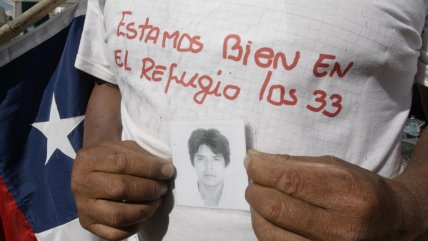 ESTAMOS BIEN EN
EL REFUGIO lOS 33